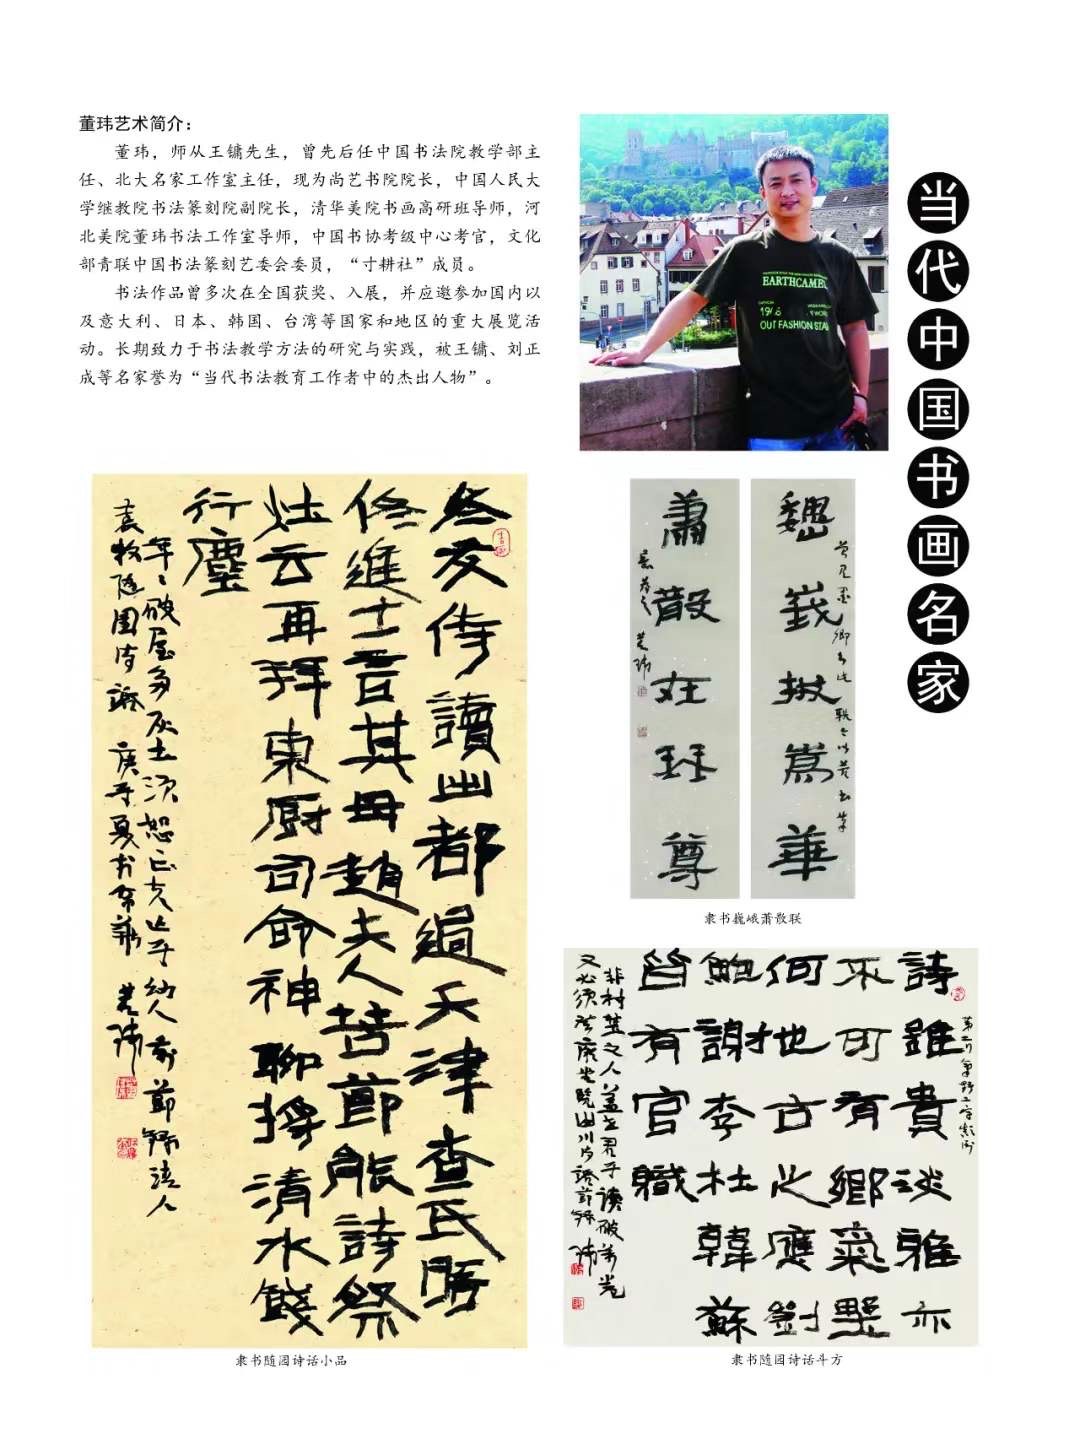 董玮艺术简介：
董玮，师从王镛先生，曾先后任中国书法院教学部主
任、北大名家工作室主任，现为尚艺书院院长，中国人民大
学继教院书法篆刻院副院长，清华美院书画高研班导师，河
北美院董玮书法工作室导师，中国书协考级中心考官，文化
部青联中国书法篆刻艺委会委员，“寸耕社”成员。
书法作品曾多次在全国获奖、入展，并应邀参加国内以
及意大利、日本、韩国、台湾等国家和地区的重大展览活
动。长期致力于书法教学方法的研究与实践，被王镛、刘正
成等名家誉为“当代书法教育工作者中的杰出人物”。
EARTHCAMEL
OUT FASHION STA
当代中国书画名家
余友侍讀出都過天津查氏晤
佟進士言其母趙夫人苦節能詩祭
灶云再拜東厨司命神聊將清水餞
行塵
年年破屋多灰土须恕
袁枚随園诗話
魏峩拔嵩華
蕭散在琴尊
隶书巍峨萧散联
詩雖貴淡雅亦
不可有鄉氣野
何也古之應劉
鮑謝李杜韓蘇
皆有官職
非村野之人盖士君子讀破萬卷
又必须登廊廟覧山川
隶书随园诗话小品
隶书随园诗话斗方